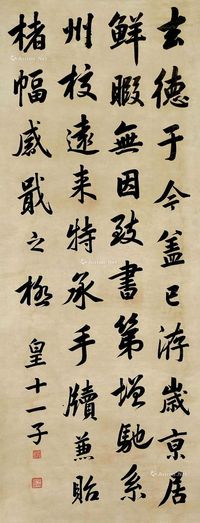 去德于今盖已洊岁京居
鮮暇無因致書第增馳系
州校遠来特承手牘兼貽
楮幅感戢之極
皇十一子